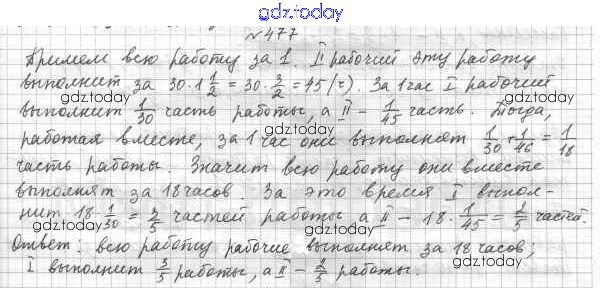 gdz.today
№477
Примем всю работу за 1. II рабочий эту работу
выполнит за 30·1 1/2 = 30·3/2 = 45 (г). За 1 час I рабочий
gdz.today gdz.today
выполнит 1/30 часть работы, а II – 1/45 часть. Тогда,
gdz.today
работая вместе, за 1 час они выполняет 1/30 + 1/46 = 1/18
часть работы. Значит всю работу они вместе
gdz.today gdz.today
выполнят за 18 часов. За это время I выпол-
нит 18·1/30 = 3/5 частей работы, а II – 18·1/45 = 2/5 частей.
gdz.today
Ответ: всю работу рабочие выполняет за 18 часов;
gdz.today gdz.today
I выполнит 3/5 работы, а II – 2/5 работы.
gdz.today